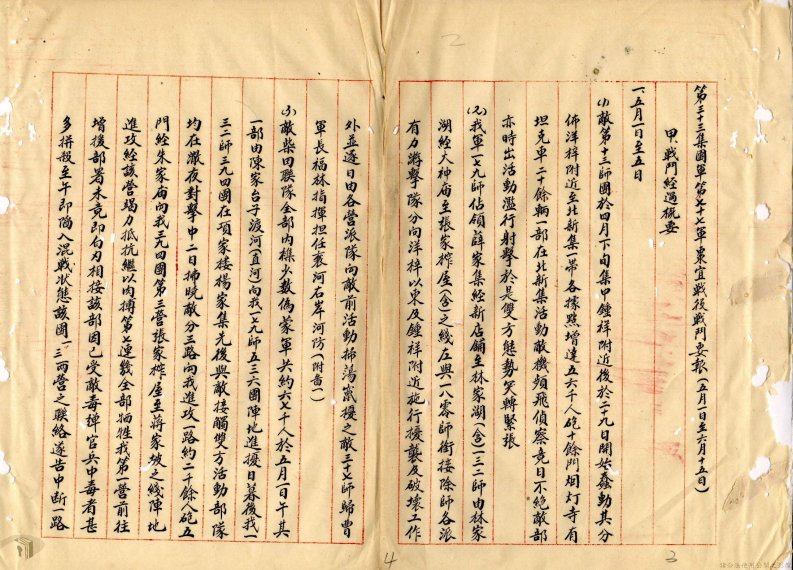 第三十三集團軍第七十七軍棗宜戰後戰鬥要報(五月一日至六月十五日)
甲、戰鬥經過概要
一、五月一日至五日
(1)敵第十三師團於四月下旬集中鍾祥附近後於二十九日開始蠢動其分
佈洋梓附近至北新集一帶各據點增達五六千人砲十餘門烟灯寺有
坦克車二十餘輛一部在北新集活動敵機頻飛偵察竟日不絕敵部
亦時出活動濫行射擊於是雙方態勢突轉緊張
(2)我軍一七九師佔領薛家集經新店舖至林家湖(含)一三二師由林家
湖經大神廟至張家榨屋(含)之綫左與一八零師銜接除師各派
有力游擊隊分向洋梓以東及鍾祥附近施行擾襲及破壞工作
3
外並逐日由各營派隊向敵前活動掃蕩竄擾之敵三十七師歸曹
軍長福林指揮担任襄河右岸河防(附畫)
(3)敵柴田聯隊全部內樵少數偽蒙軍共約六七千人於五月一日午其
一部由陳家台子渡河(直河)向我一七九師五三六團陣地進擾日暮後我一
三二師三九四團在項家楼楊家集先後與敵接觸雙方活動部隊
均在澈夜對擊中二日拂曉敵分三路向我進攻一路約二千餘人砲五
門經朱家廟向我三九四團第三營張家榨屋至蔣家坡之綫陣地
進攻經該營竭力抵抗繼以肉搏第七連幾全部牺牲我第一營前往
增援部署未竟即白刃相接該部因已受敵毒彈官兵中毒者甚
多拼殺至午即陷入混戰狀態該團一三兩營之聯絡遂告中斷一路
4